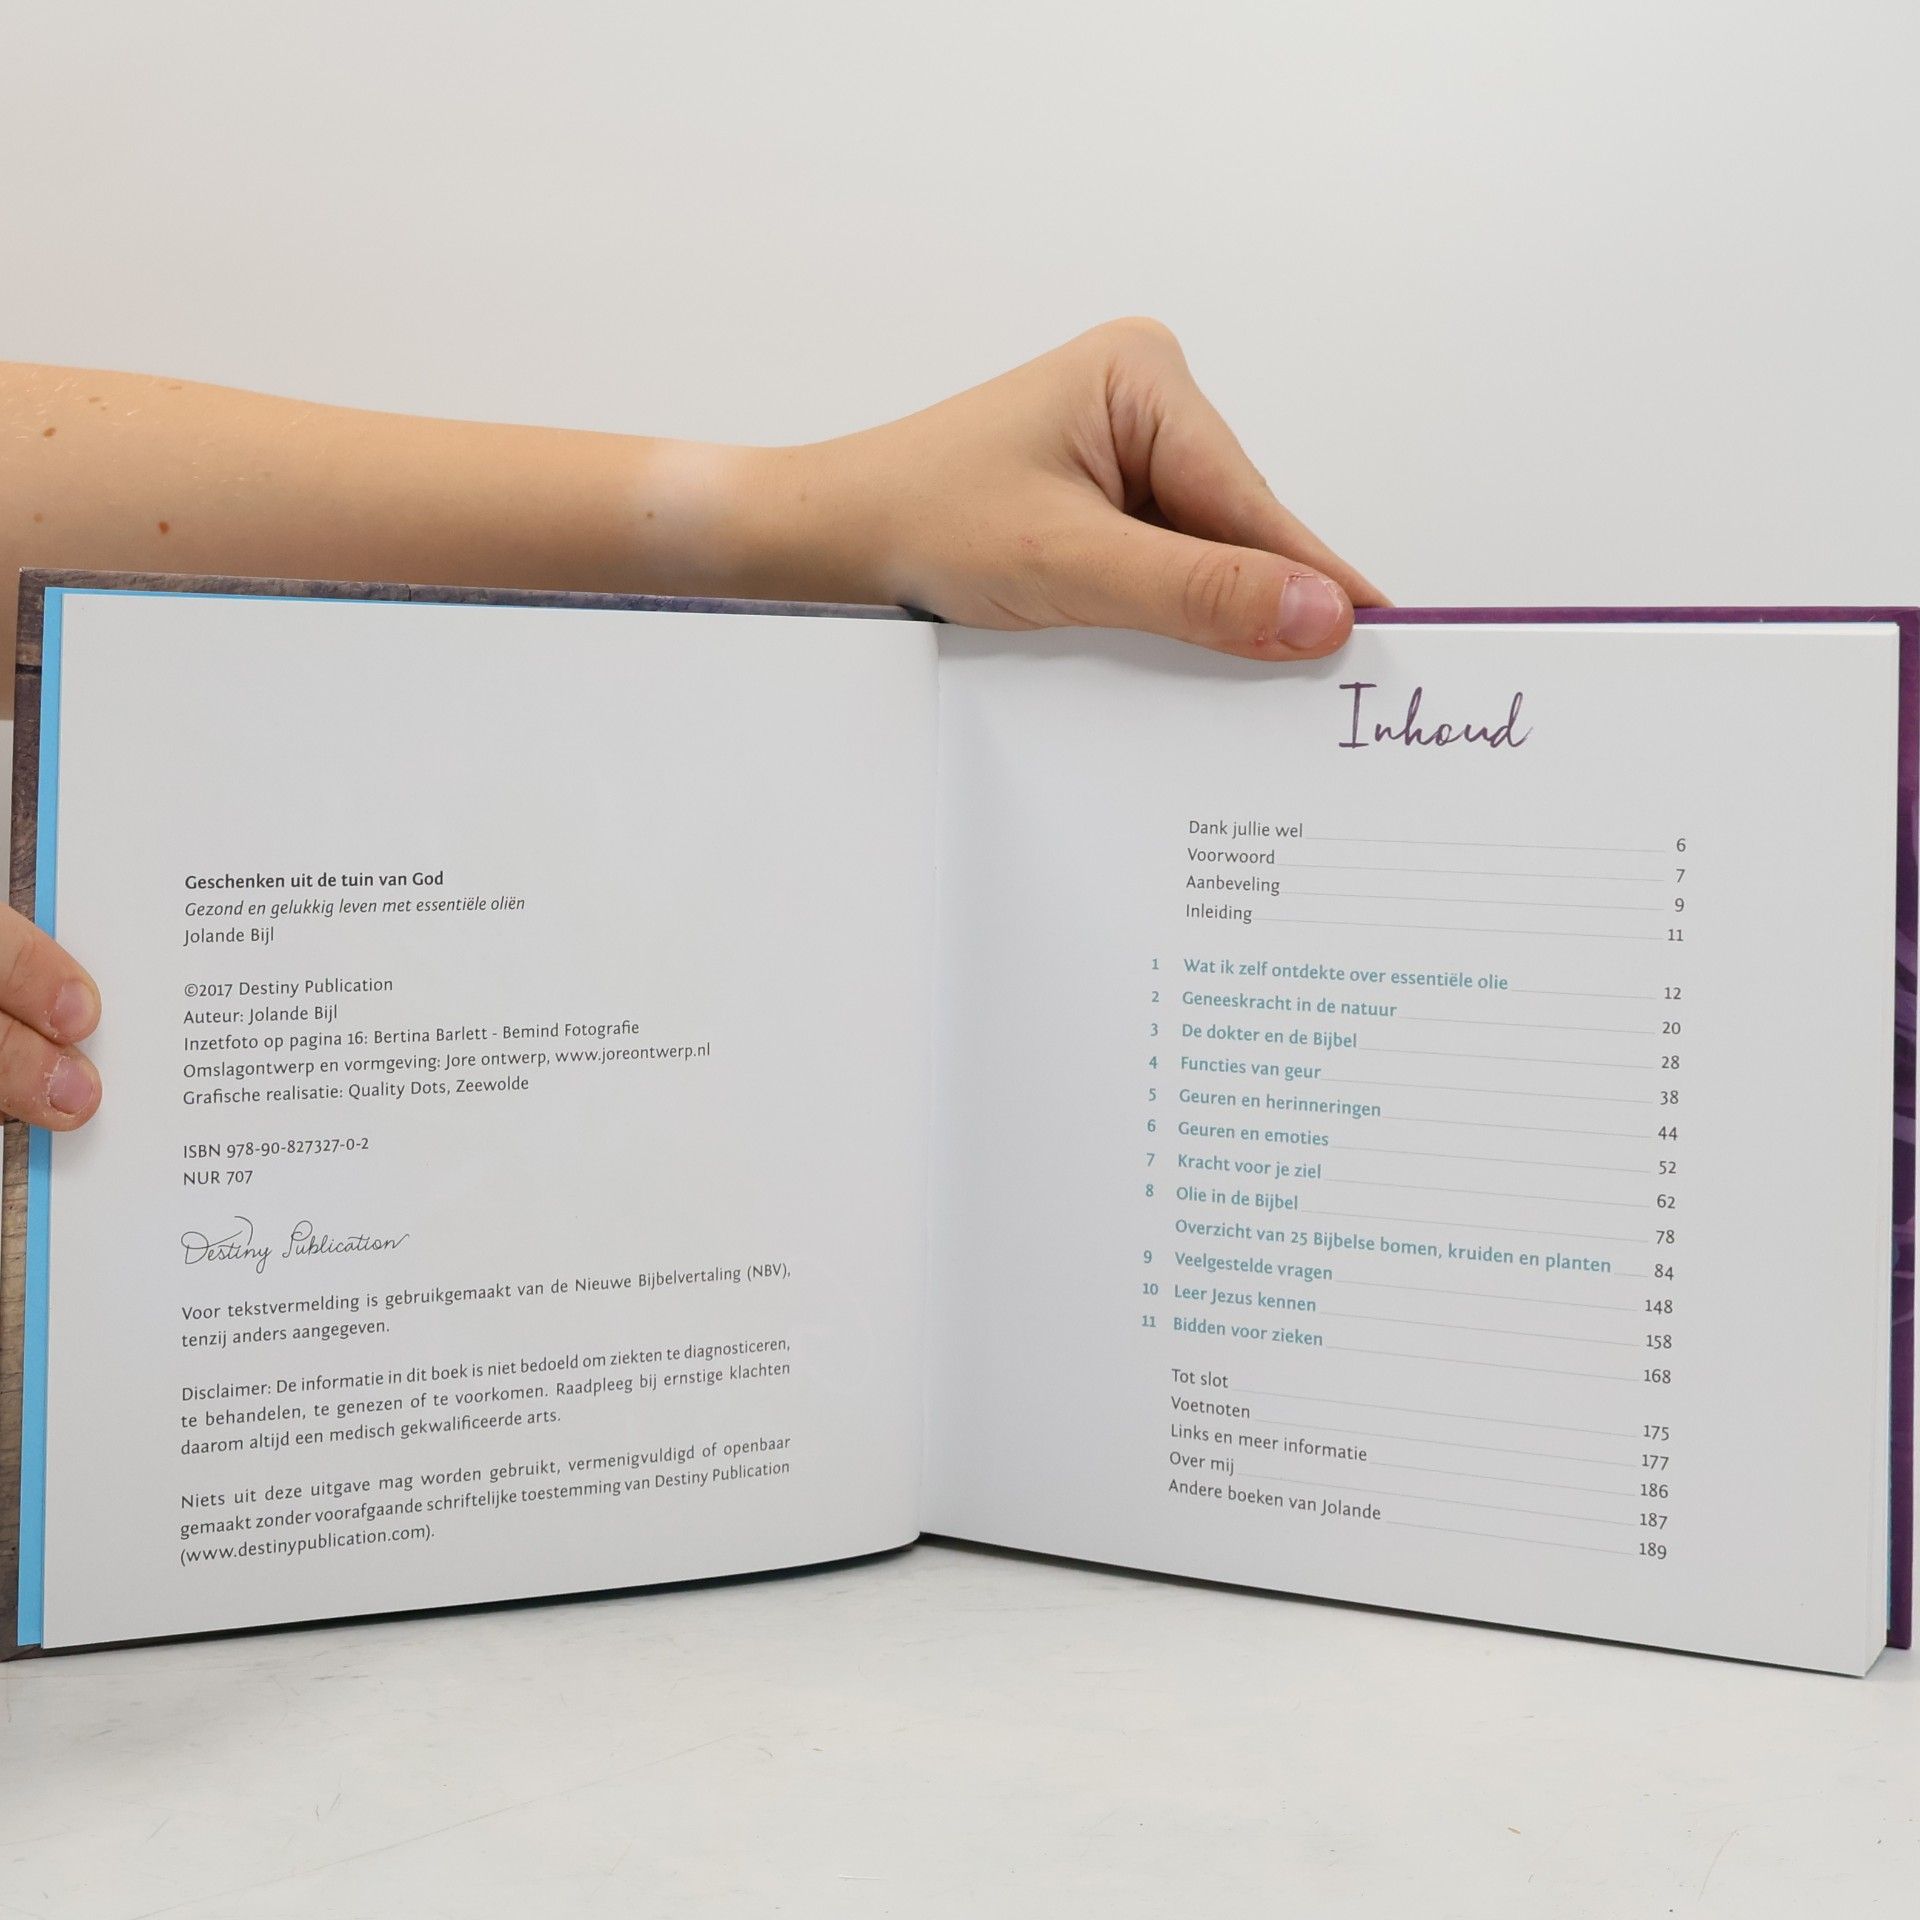 Geschenken uit de tuin van God
Gezond en gelukkig leven met essentiële oliën
Jolande Bijl
©2017 Destiny Publication
Auteur: Jolande Bijl
Inzetfoto op pagina 16: Bertina Barlett - Bemind Fotografie
Omslagontwerp en vormgeving: Jore ontwerp, www.joreontwerp.nl
Grafische realisatie: Quality Dots, Zeewolde
ISBN 978-90-827327-0-2
NUR 707
Destiny Publication
Voor tekstvermelding is gebruikgemaakt van de Nieuwe Bijbelvertaling (NBV),
tenzij anders aangegeven.
Disclaimer: De informatie in dit boek is niet bedoeld om ziekten te diagnosticeren,
te behandelen, te genezen of te voorkomen. Raadpleeg bij ernstige klachten
daarom altijd een medisch gekwalificeerde arts.
Niets uit deze uitgave mag worden gebruikt, vermenigvuldigd of openbaar
gemaakt zonder voorafgaande schriftelijke toestemming van Destiny Publication
(www.destinypublication.com).
Inhoud
Dank jullie wel 6
Voorwoord 7
Aanbeveling 9
Inleiding 11
1 Wat ik zelf ontdekte over essentiële olie 12
2 Geneeskracht in de natuur 20
3 De dokter en de Bijbel 28
4 Functies van geur 38
5 Geuren en herinneringen 44
6 Geuren en emoties 52
7 Kracht voor je ziel 62
8 Olie in de Bijbel 78
Overzicht van 25 Bijbelse bomen, kruiden en planten 84
9 Veelgestelde vragen 148
10 Leer Jezus kennen 158
11 Bidden voor zieken 168
Tot slot 175
Voetnoten 177
Links en meer informatie 186
Over mij 187
Andere boeken van Jolande 189